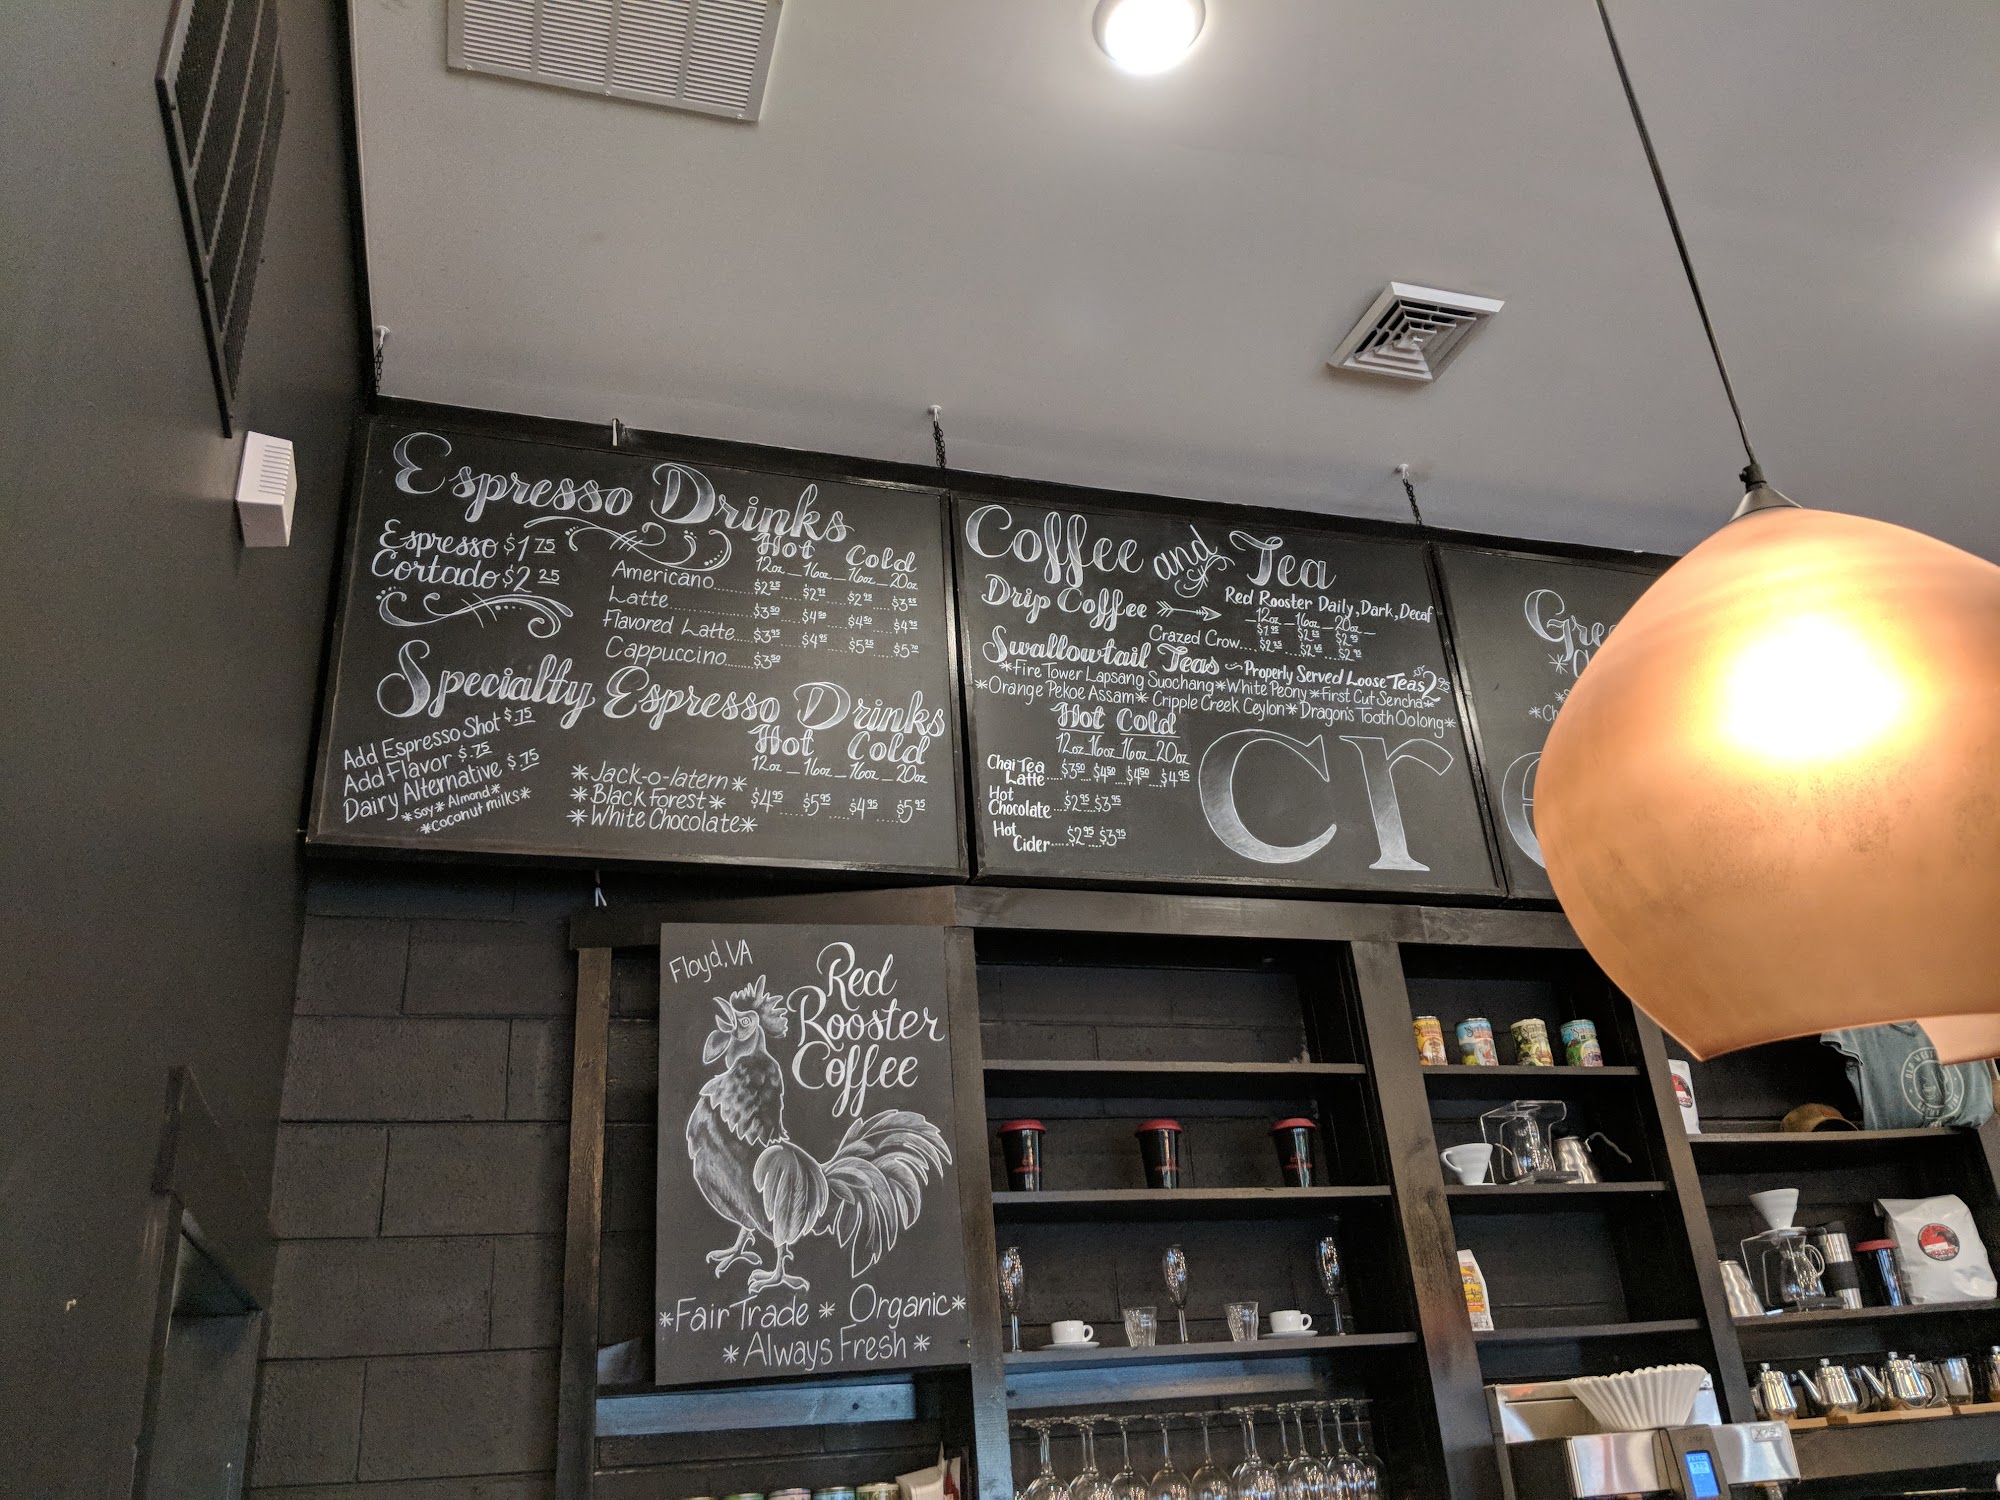 Espresso Drinks
Espresso $1.75
Cortado $2.25
Hot Cold
12oz 16oz 16oz 20oz
Americano $2.25 $2.95 $2.95 $3.25
Latte $3.50 $4.50 $4.50 $4.95
Flavored Latte $3.95 $4.95 $5.25 $5.70
Cappuccino $3.50
Specialty Espresso Drinks
Add Espresso Shot $.75
Add Flavor $.75
Dairy Alternative $.75
*Soy* Almond*
*Coconut milks*
Hot Cold
12oz 16oz 16oz 20oz
*Jack-o-latern*
*Black Forest* $4.95 $5.95 $4.95 $5.95
*White Chocolate*
Coffee and Tea
Drip Coffee
Red Rooster Daily, Dark, Decaf
12oz 16oz 20oz
$1.95 $2.25 $2.95
Crazed Crow $2.25 $2.65 $2.95
Swallowtail Teas ~ Properly Served Loose Teas $2.95
*Fire Tower Lapsang Suochang*White Peony*First Cut Sencha*
*Orange Pekoe Assam* Cripple Creek Ceylon* Dragon's Tooth Oolong*
Hot Cold
12oz 16oz 16oz 20oz
Chai Tea Latte $3.50 $4.50 $4.50 $4.95
Hot Chocolate $2.95 $3.95
Hot Cider $2.95 $3.95
cr
Floyd, VA
Red
Rooster
Coffee
*Fair Trade * Organic*
*Always Fresh*